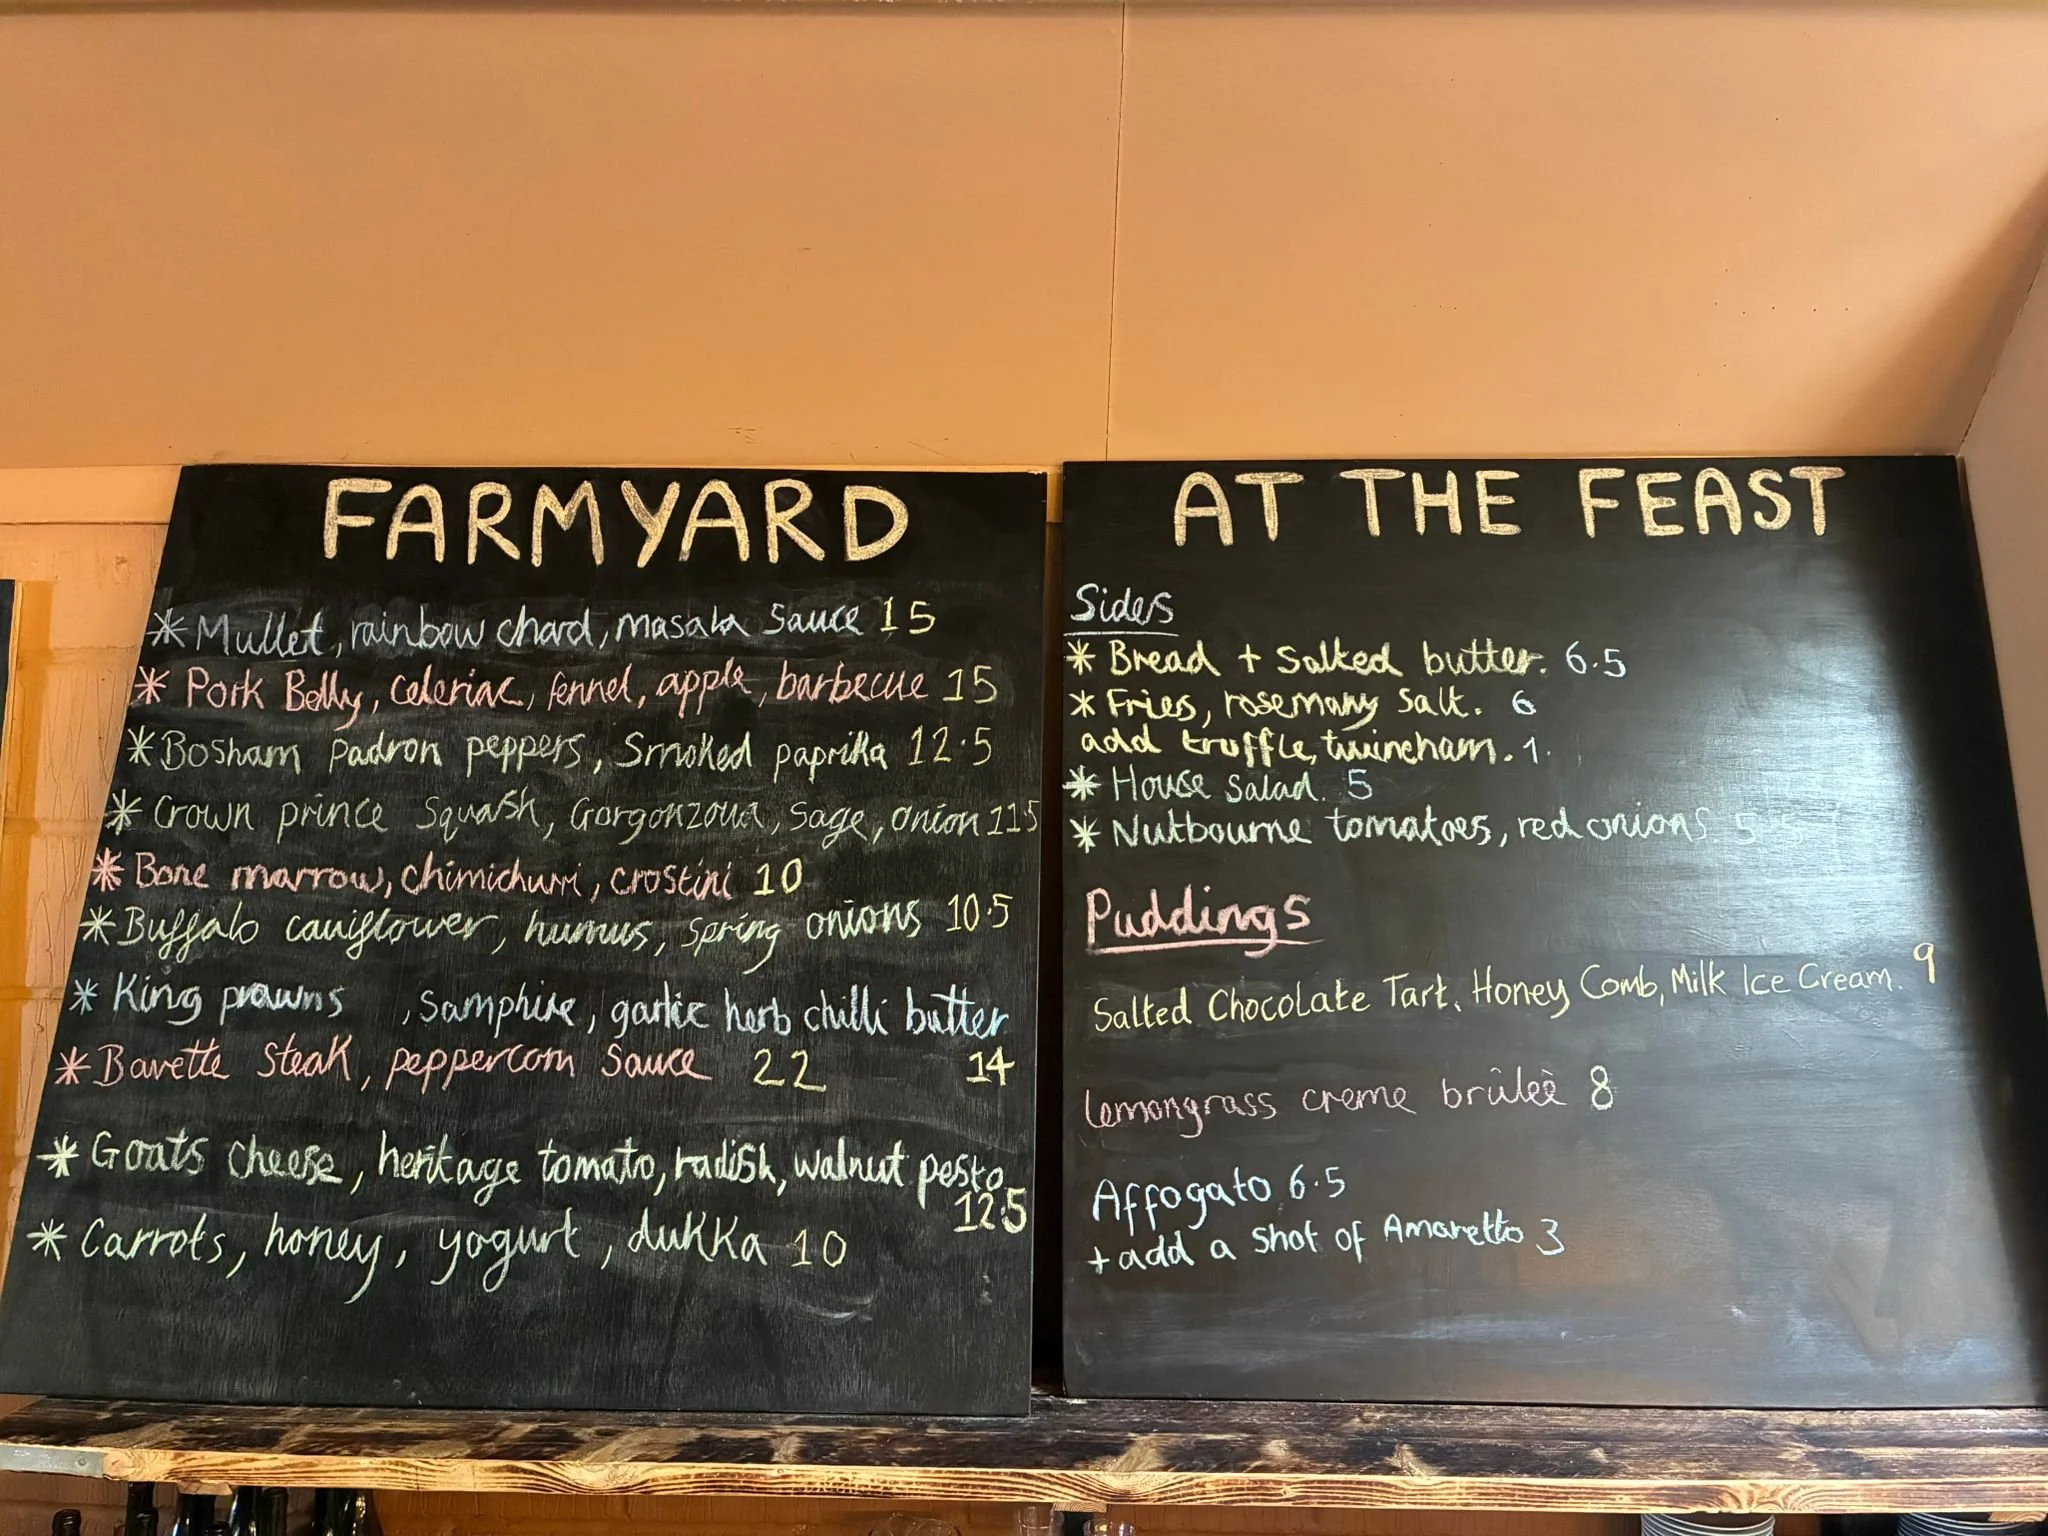 FARMYARD
* Mullet, rainbow chard, masala sauce 15
* Pork Belly, celeriac, fennel, apple, barbecue 15
* Bosham padron peppers, Smoked paprika 12.5
* Crown prince Squash, Gorgonzola, Sage, onion 11.5
* Bone marrow, chimichurri, crostini 10
* Buffalo cauiflower, humus, spring onions 10.5
* King prawns , samphire, garlic herb chilli butter
14
* Bavette Steak, peppercorn Sauce 22
* Goats cheese, heritage tomato, radish, walnut pesto
12.5
* Carrots, honey, yogurt, dukka 10
AT THE FEAST
Sides
* Bread + salted butter. 6.5
* Fries, rosemary salt. 6
add truffle, twineham. 1.
* House salad. 5
* Nutbourne tomatoes, red onions 5.5
Puddings
Salted Chocolate Tart, Honey Comb, Milk Ice Cream. 9
lemongrass creme brûleè 8
Affogato 6.5
+ add a shot of Amaretto 3